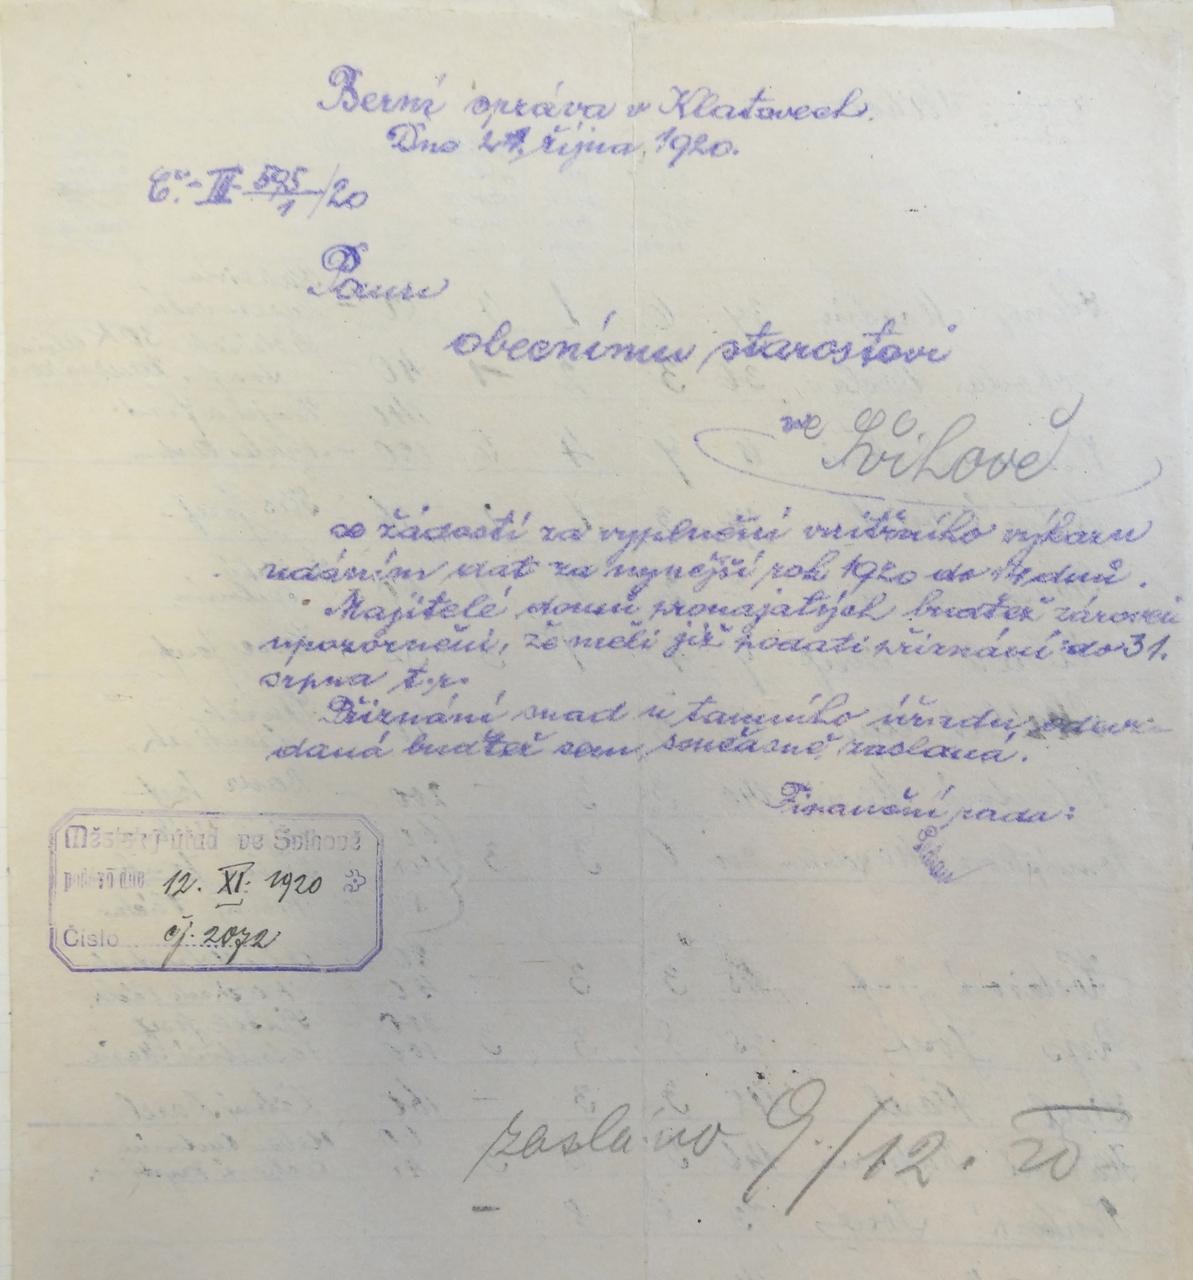 Berní správa v Klatovech.
Dne 21. října 1920.
Č.-II-595/1/20
Panu
obecnímu starostovi
ve Švihově
se žádostí za vyplnění vnitřního výkazu
udáním dat za nynější rok 1920 do 14 dnů.
Majitelé domů pronajatých buďtež zároveň
upozorněni, že měli již podati přiznání do 31.
srpna t.r.
Přiznání snad u tamního úřadu odev-
daná buďtež sem současně zaslána.
Finanční rada:
Městský úřad ve Švihově
došlo dne 12. XI. 1920
Číslo čj. 2072
zasláno 9./12. 20